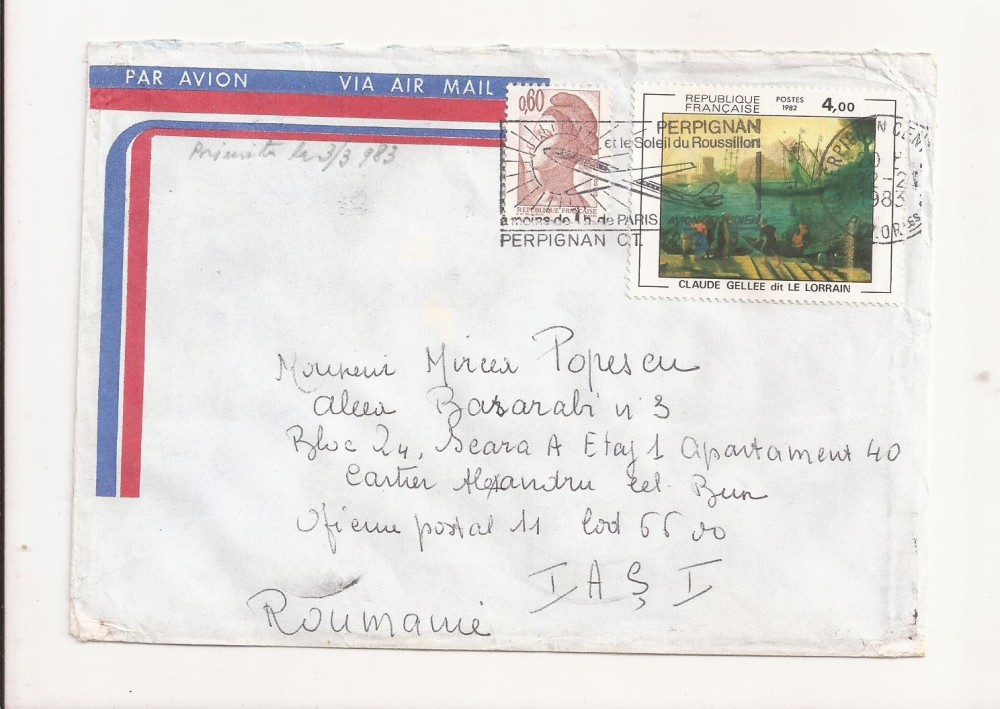 PAR AVION VIA AIR MAIL
0,60
REPUBLIQUE FRANÇAISE
REPUBLIQUE
FRANÇAISE
POSTES
1982
4,00
CLAUDE GELLEE dit LE LORRAIN
PERPIGNAN
et le Soleil du Roussillon
AVION QUOTIDIEN
à moins de 1h. de PARIS
PERPIGNAN C.T.
983
3/3 983
Monsieur Mircea Popescu
Aleea Basarabi n 3
Bloc 24, Scara A Etaj 1 Apartament 40
Cartier Alexandru cel Bun
Oficiul postal 11 Cod 6600
IAŞI
Roumanie